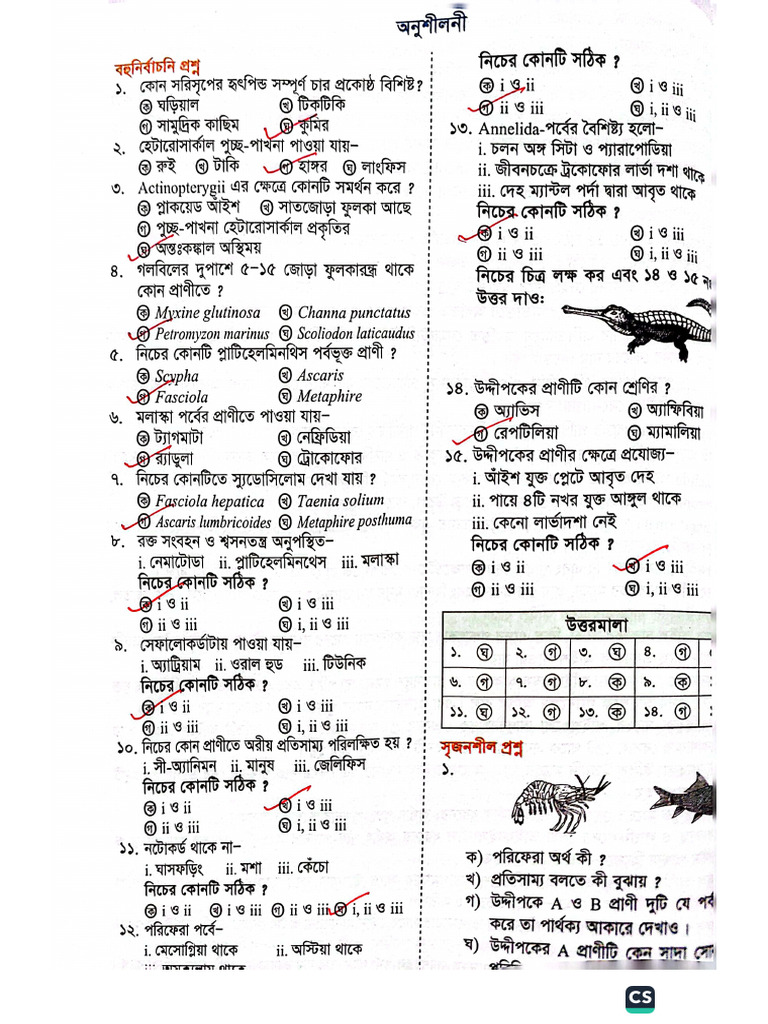 অনুশীলনী
বহুনির্বাচনি প্রশ্ন
১. কোন সরিসৃপের হৃৎপিন্ড সম্পূর্ণ চার প্রকোষ্ঠ বিশিষ্ট?
ক ঘড়িয়াল খ টিকটিকি
গ সামুদ্রিক কাছিম ঘ কুমির
২. হেটারোসার্কাল পুচ্ছ-পাখনা পাওয়া যায়–
ক রুই খ টাকি গ হাঙ্গর ঘ লাংফিস
৩. Actinopterygii এর ক্ষেত্রে কোনটি সমর্থন করে ?
ক প্লাকয়েড আঁইশ খ সাতজোড়া ফুলকা আছে
গ পুচ্ছ-পাখনা হেটারোসার্কাল প্রকৃতির
ঘ অন্তঃকঙ্কাল অস্থিময়
৪. গলবিলের দুপাশে ৫-১৫ জোড়া ফুলকারন্ধ্র থাকে
কোন প্রাণীতে ?
ক Myxine glutinosa খ Channa punctatus
গ Petromyzon marinus ঘ Scoliodon laticaudus
৫. নিচের কোনটি প্লাটিহেলমিনথিস পর্বভূক্ত প্রাণী ?
ক Scypha খ Ascaris
গ Fasciola ঘ Metaphire
৬. মলাস্কা পর্বের প্রাণীতে পাওয়া যায়–
ক ট্যাগমাটা খ নেফ্রিডিয়া
গ র‍্যাডুলা ঘ ট্রোকোফোর
৭. নিচের কোনটিতে স্যুডোসিলোম দেখা যায় ?
ক Fasciola hepatica খ Taenia solium
গ Ascaris lumbricoides ঘ Metaphire posthuma
৮. রক্ত সংবহন ও শ্বসনতন্ত্র অনুপস্থিত–
i. নেমাটোডা ii. প্লাটিহেলমিনথেস iii. মলাস্কা
নিচের কোনটি সঠিক ?
ক i ও ii খ i ও iii
গ ii ও iii ঘ i, ii ও iii
৯. সেফালোকর্ডাটায় পাওয়া যায়–
i. অ্যাট্রিয়াম ii. ওরাল হুড iii. টিউনিক
নিচের কোনটি সঠিক ?
ক i ও ii খ i ও iii
গ ii ও iii ঘ i, ii ও iii
১০. নিচের কোন প্রাণীতে অরীয় প্রতিসাম্য পরিলক্ষিত হয় ?
i. সী-অ্যানিমন ii. মানুষ iii. জেলিফিস
নিচের কোনটি সঠিক ?
ক i ও ii খ i ও iii
গ ii ও iii ঘ i, ii ও iii
১১. নটোকর্ড থাকে না–
i. ঘাসফড়িং ii. মশা iii. কেঁচো
নিচের কোনটি সঠিক ?
ক i ও ii খ i ও iii গ ii ও iii ঘ i, ii ও iii
১২. পরিফেরা পর্বে–
i. মেসোগ্লিয়া থাকে ii. অস্টিয়া থাকে
নিচের কোনটি সঠিক ?
ক i ও ii খ i ও iii
গ ii ও iii ঘ i, ii ও iii
১৩. Annelida-পর্বের বৈশিষ্ট্য হলো–
i. চলন অঙ্গ সিটা ও প্যারাপোডিয়া
ii. জীবনচক্রে ট্রকোফোর লার্ভা দশা থাকে
iii. দেহ ম্যান্টল পর্দা দ্বারা আবৃত থাকে
নিচের কোনটি সঠিক ?
ক i ও ii খ i ও iii
গ ii ও iii ঘ i, ii ও iii
নিচের চিত্র লক্ষ কর এবং ১৪ ও ১৫ ন
উত্তর দাওঃ
১৪. উদ্দীপকের প্রাণীটি কোন শ্রেণির ?
ক অ্যাভিস খ অ্যাম্ফিবিয়া
গ রেপটিলিয়া ঘ ম্যামালিয়া
১৫. উদ্দীপকের প্রাণীর ক্ষেত্রে প্রযোজ্য–
i. আঁইশ যুক্ত প্লেটে আবৃত দেহ
ii. পায়ে ৪টি নখর যুক্ত আঙ্গুল থাকে
iii. কেনো লার্ভাদশা নেই
নিচের কোনটি সঠিক ?
ক i ও ii খ i ও iii
গ ii ও iii ঘ i, ii ও iii
উত্তরমালা
১. ঘ ২. গ ৩. ঘ ৪. গ
৬. গ ৭. গ ৮. ক ৯. ক
১১. ঘ ১২. গ ১৩. ক ১৪. গ
সৃজনশীল প্রশ্ন
১.
ক) পরিফেরা অর্থ কী ?
খ) প্রতিসাম্য বলতে কী বুঝায় ?
গ) উদ্দীপকে A ও B প্রাণী দুটি যে পর্ব
করে তা পার্থক্য আকারে দেখাও ।
ঘ) উদ্দীপকের A প্রাণীটি কেন সাদা
CS